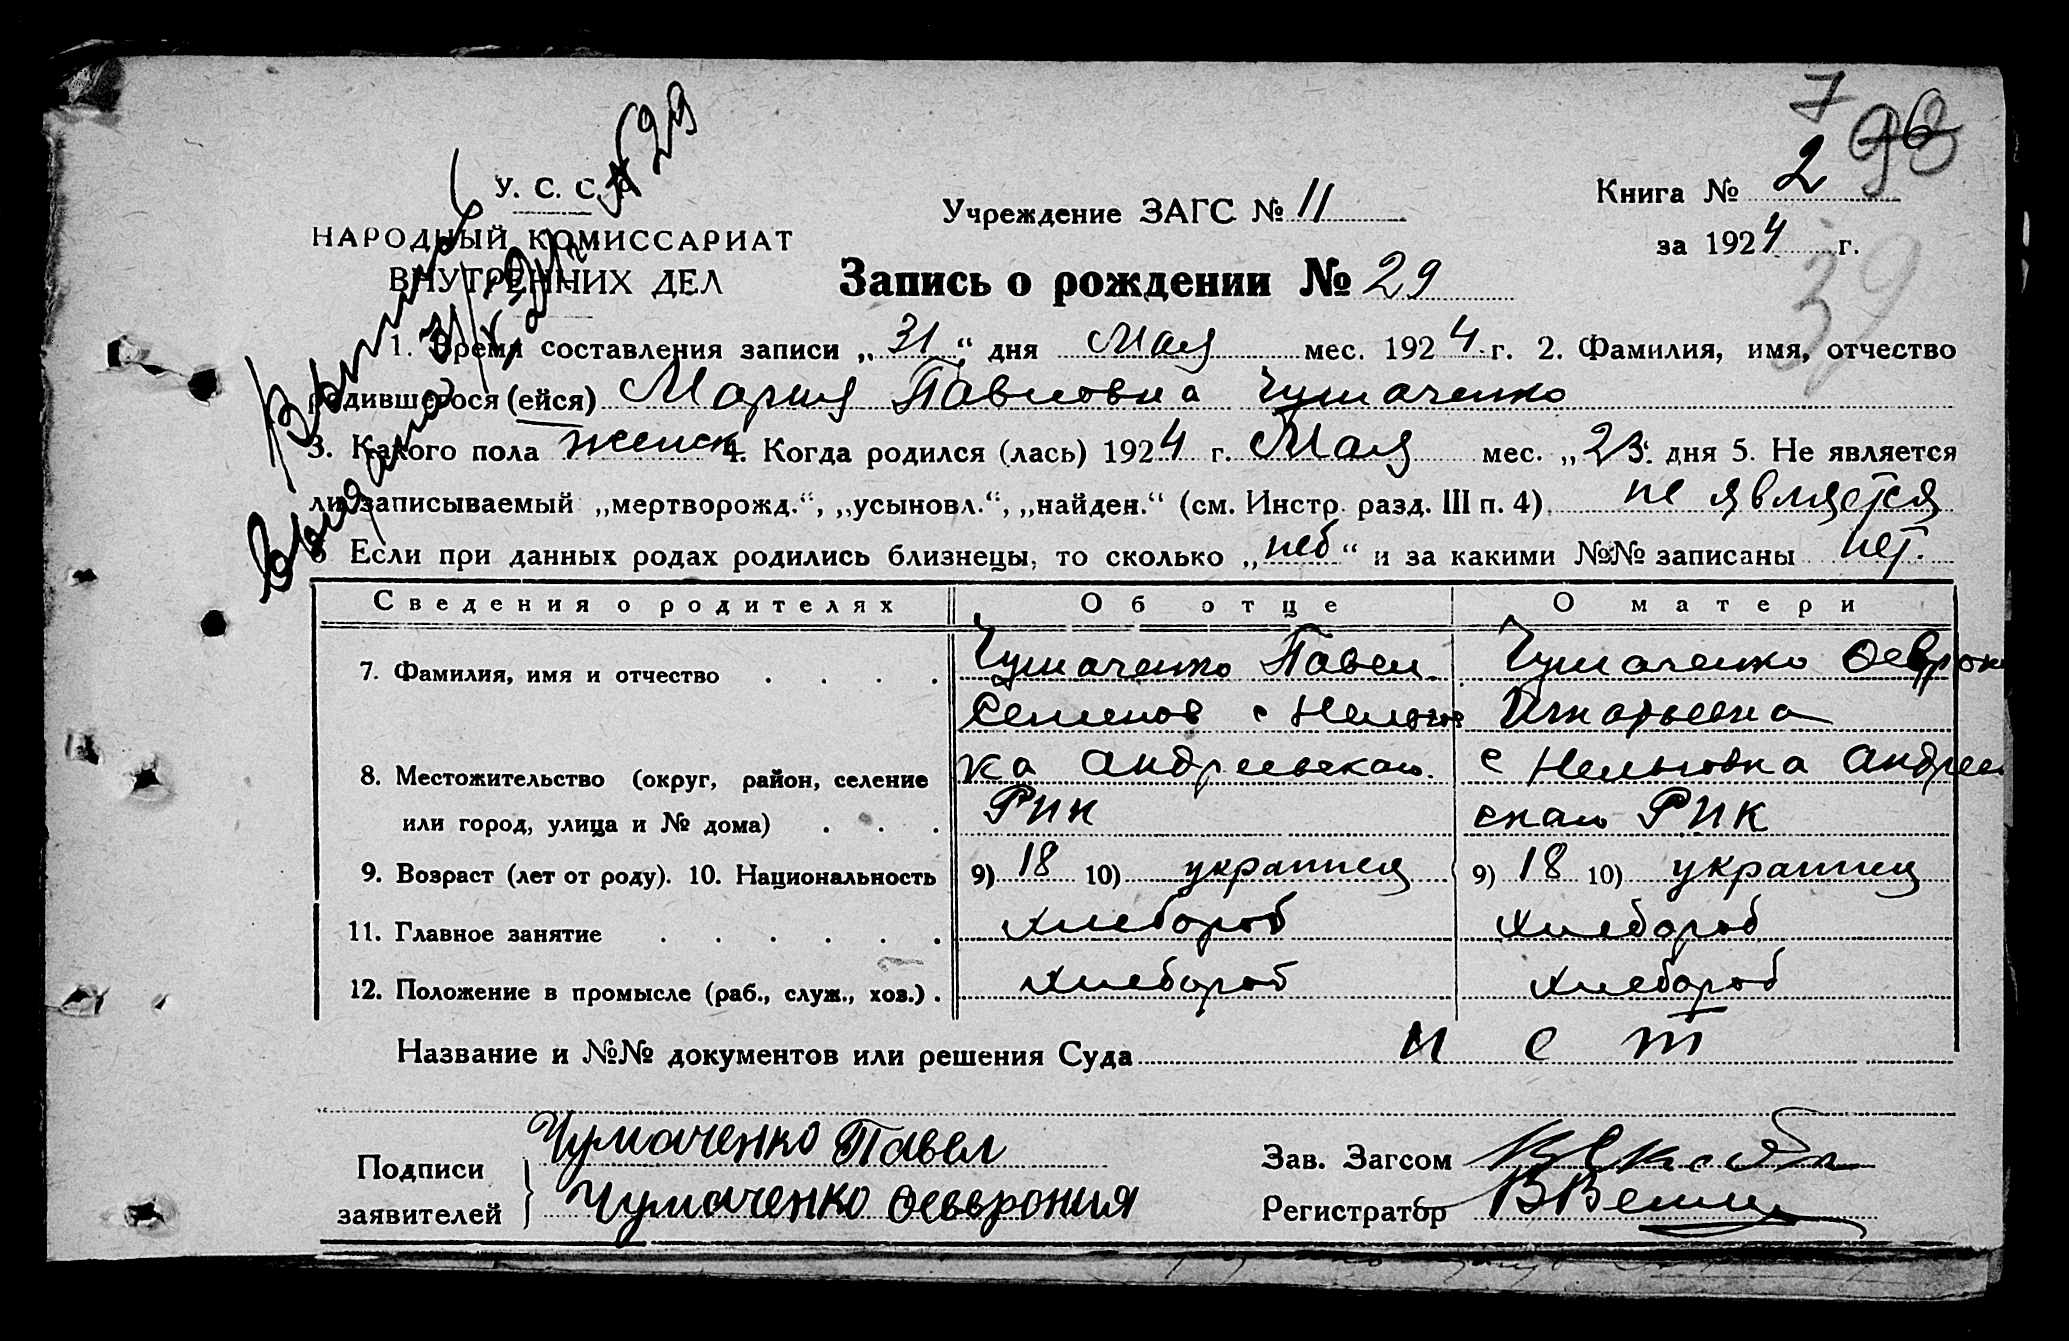 7 93
У. С. С. Р.
№ 29
Учреждение ЗАГС № 11
Книга № 2
НАРОДНЫЙ КОМИССАРИАТ
ВНУТРЕННИХ ДЕЛ
за 1924 г.
39
Запись о рождении № 29
1. Время составления записи „31“ дня Мая мес. 1924 г. 2. Фамилия, имя, отчество
родившегося (ейся) Мария Павловна Чумаченко
3. Какого пола женск 4. Когда родился (лась) 1924 г. Мая мес. „23“ дня 5. Не является
ли записываемый „мертворожд.“, „усыновл.“, „найден.“ (см. Инстр. разд. III п. 4) не является
6 Если при данных родах родились близнецы, то сколько „ “ и за какими №№ записаны нет.
Выпись
Выдана
Сведения о родителях Об отце О матери
7. Фамилия, имя и отчество . . . . Чумаченко Павел Чумаченко Февроні
Семенов с Игнатьевна
8. Местожительство (округ, район, селение ка Андреевскаго с Андреев
или город, улица и № дома) . . . РИК скаго РИК
9. Возраст (лет от роду). 10. Национальность 9) 18 10) украинец 9) 18 10) украинец
11. Главное занятие . . . . . . хлебороб хлебороб
12. Положение в промысле (раб., служ., хоз.) . хлебороб хлебороб
Название и №№ документов или решения Суда Н е т
Подписи заявителей } Чумаченко Павел
Чумаченко Феврония
Зав. Загсом
Регистратор